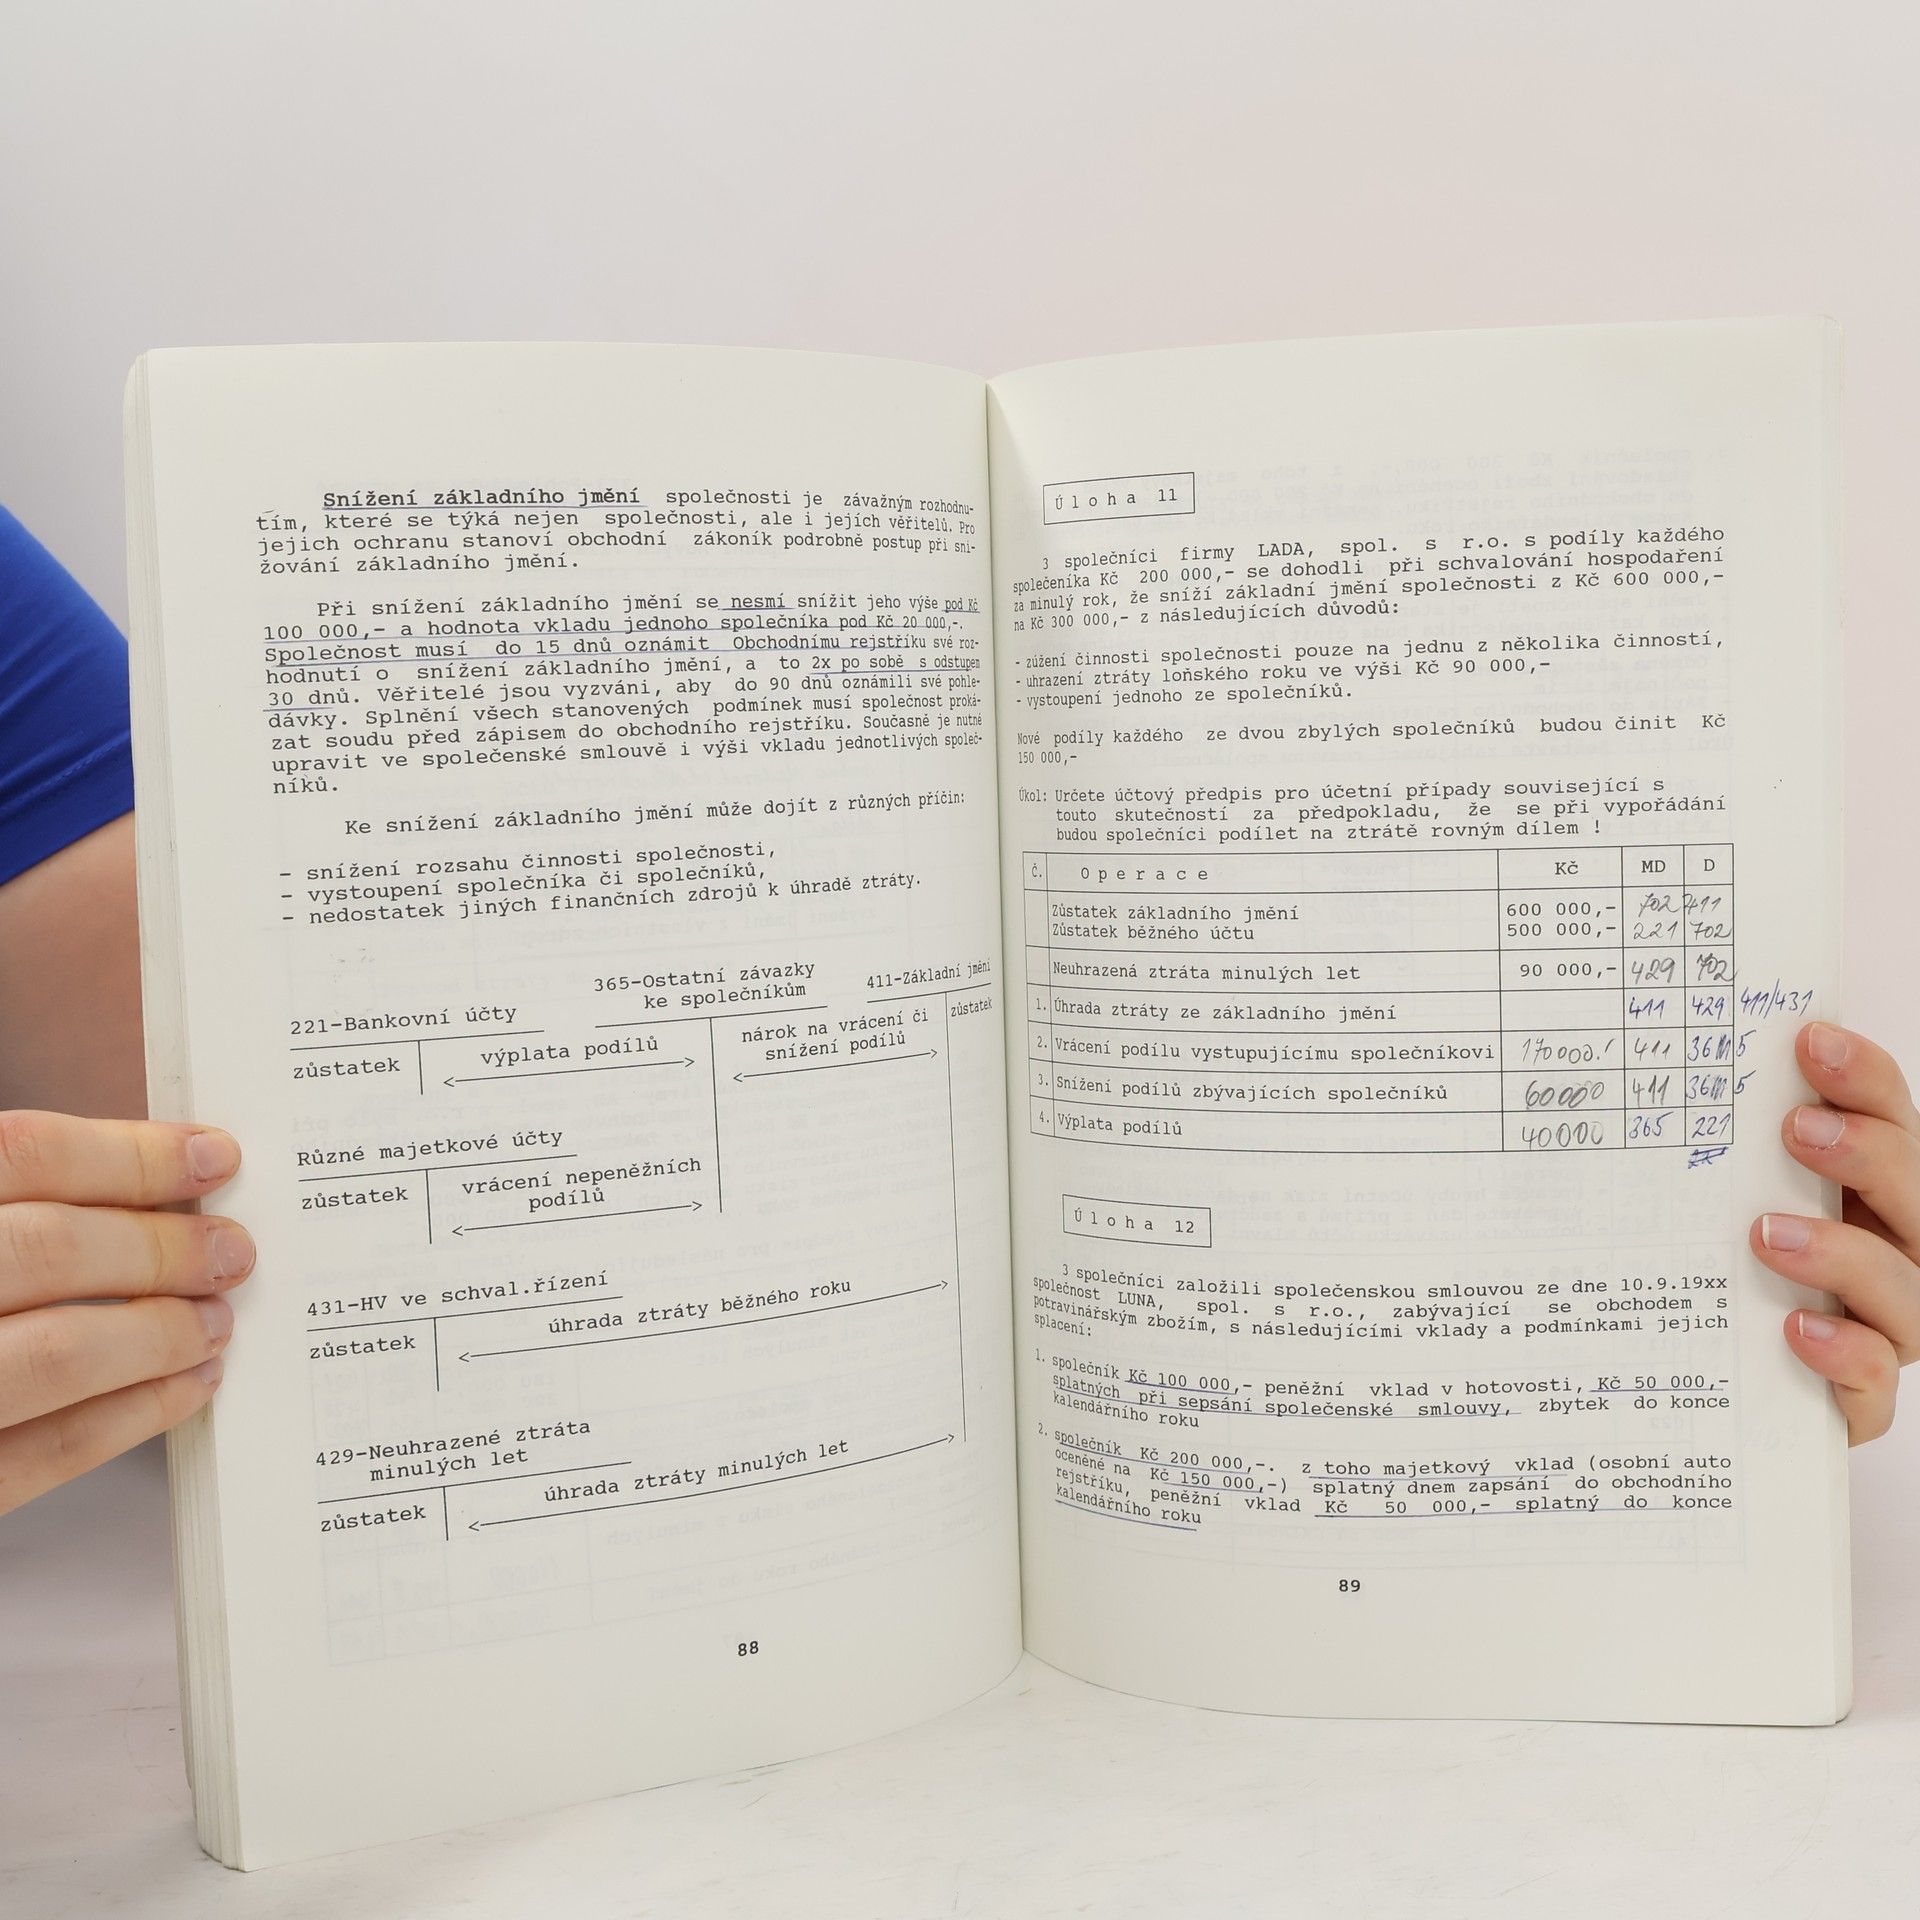 Snížení základního jmění společnosti je závažným rozhodnu-
tím, které se týká nejen společnosti, ale i jejích věřitelů. Pro
jejich ochranu stanoví obchodní zákoník podrobně postup při sni-
žování základního jmění.
Při snížení základního jmění se nesmí snížit jeho výše pod Kč
100 000,- a hodnota vkladu jednoho společníka pod Kč 20 000,-.
Společnost musí do 15 dnů oznámit Obchodnímu rejstříku své roz-
hodnutí o snížení základního jmění, a to 2x po sobě s odstupem
30 dnů. Věřitelé jsou vyzváni, aby do 90 dnů oznámili své pohle-
dávky. Splnění všech stanovených podmínek musí společnost proká-
zat soudu před zápisem do obchodního rejstříku. Současně je nutné
upravit ve společenské smlouvě i výši vkladu jednotlivých společ-
níků.
Ke snížení základního jmění může dojít z různých příčin:
- snížení rozsahu činnosti společnosti,
- vystoupení společníka či společníků,
- nedostatek jiných finančních zdrojů k úhradě ztráty.
221-Bankovní účty
365-Ostatní závazky
ke společníkům
411-Základní jmění
zůstatek
výplata podílů
nárok na vrácení či
snížení podílů
zůstatek
Různé majetkové účty
zůstatek
vrácení nepeněžních
podílů
431-HV ve schval.řízení
zůstatek
úhrada ztráty běžného roku
429-Neuhrazené ztráta
minulých let
zůstatek
úhrada ztráty minulých let
88
Úloha 11
3 společníci firmy LADA, spol. s r.o. s podíly každého
společeníka Kč 200 000,- se dohodli při schvalování hospodaření
za minulý rok, že sníží základní jmění společnosti z Kč 600 000,-
na Kč 300 000,- z následujících důvodů:
- zúžení činnosti společnosti pouze na jednu z několika činností,
- uhrazení ztráty loňského roku ve výši Kč 90 000,-
- vystoupení jednoho ze společníků.
Nové podíly každého ze dvou zbylých společníků budou činit Kč
150 000,-
Úkol: Určete účtový předpis pro účetní případy související s
touto skutečností za předpokladu, že se při vypořádání
budou společníci podílet na ztrátě rovným dílem !
Č. Operace Kč MD D
Zůstatek základního jmění 600 000,- 702 411
Zůstatek běžného účtu 500 000,- 221 702
Neuhrazená ztráta minulých let 90 000,- 429 702
1. Úhrada ztráty ze základního jmění 411 429 411/431
2. Vrácení podílu vystupujícímu společníkovi 170000.! 411 365
3. Snížení podílů zbývajících společníků 60000 411 365
4. Výplata podílů 40000 365 221
Úloha 12
3 společníci založili společenskou smlouvou ze dne 10.9.19xx
společnost LUNA, spol. s r.o., zabývající se obchodem s
potravinářským zbožím, s následujícími vklady a podmínkami jejich
splacení:
1. společník Kč 100 000,- peněžní vklad v hotovosti, Kč 50 000,-
splatných při sepsání společenské smlouvy, zbytek do konce
kalendářního roku
2. společník Kč 200 000,-. z toho majetkový vklad (osobní auto
oceněné na Kč 150 000,-) splatný dnem zapsání do obchodního
rejstříku, peněžní vklad Kč 50 000,- splatný do konce
kalendářního roku
89